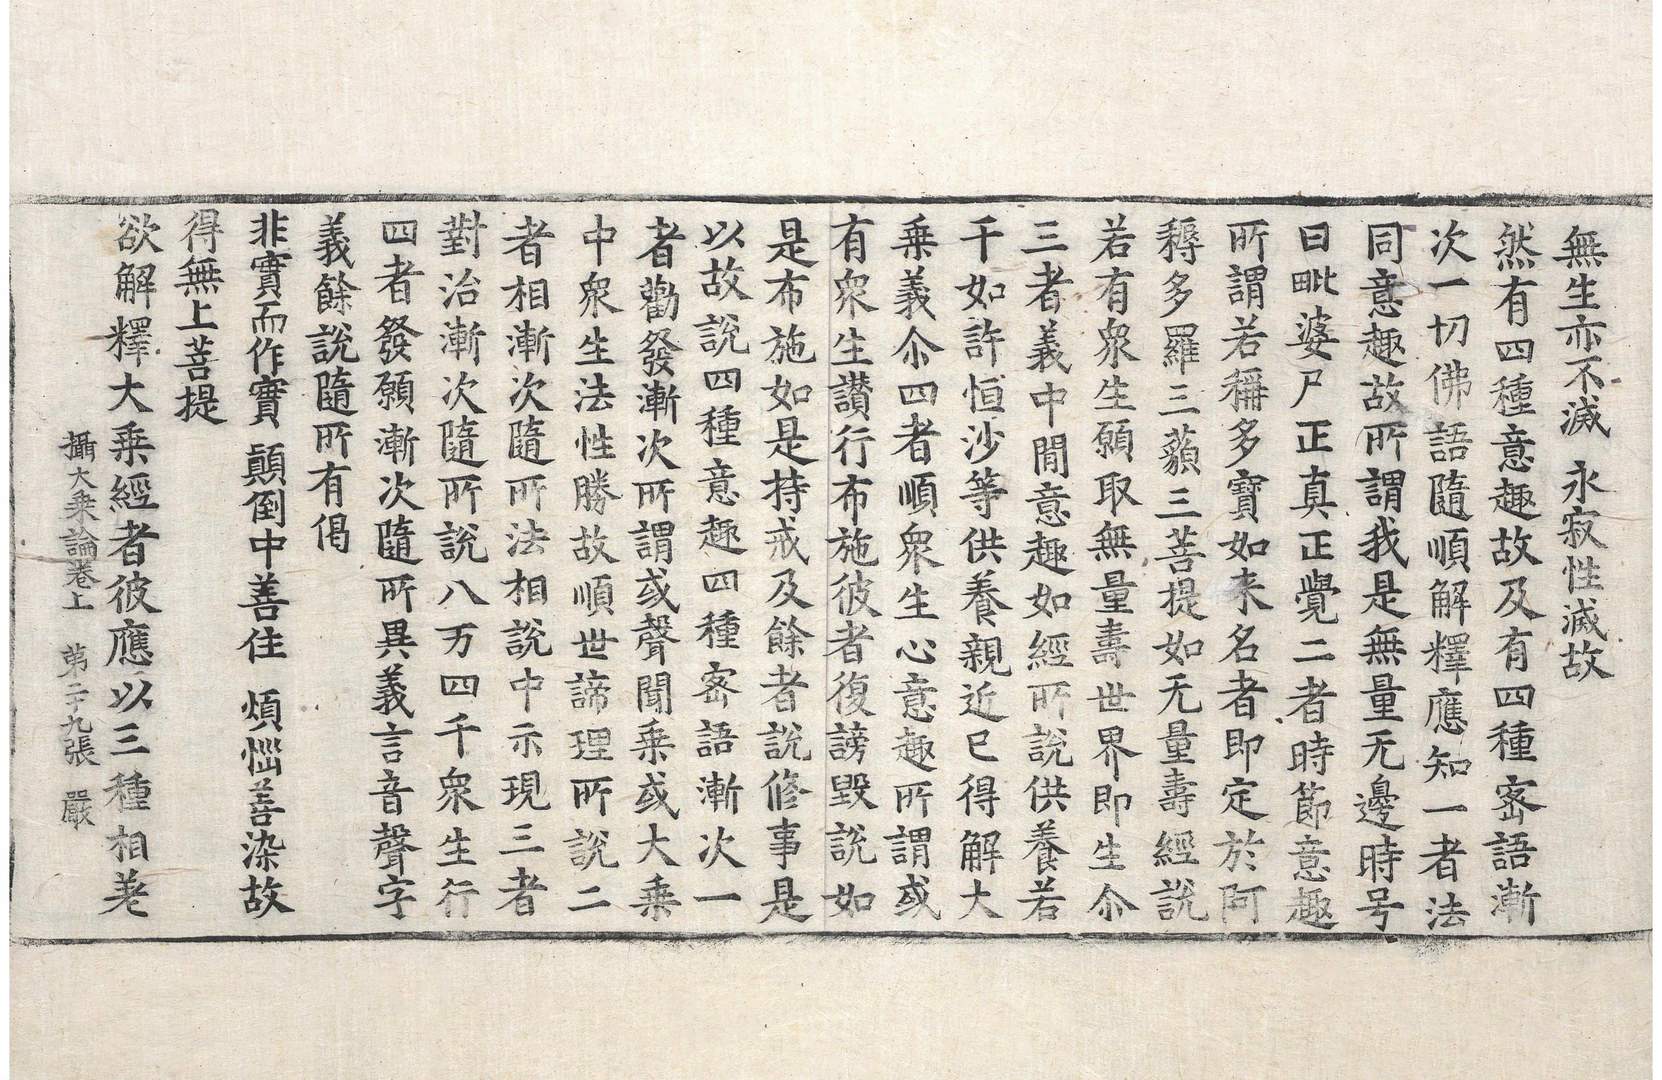 無生亦不滅 永寂性滅故
然有四種意趣故及有四種密語漸
次一切佛語隨順解釋應知一者法
同意趣故所謂我是無量无邊時号
曰毗婆尸正真正覺二者時節意趣
所謂若稱多寶如来名者即定於阿
耨多羅三藐三菩提如无量壽經說
若有衆生願取無量壽世界即生尒
三者義中間意趣如經所說供養若
千如許恒沙等供養親近已得解大
乗義尒四者順衆生心意趣所謂或
有衆生讃行布施彼者復謗毀說如
是布施如是持戒及餘者說修事是
以故說四種意趣四種密語漸次一
者勸發漸次所謂或聲聞乗或大乗
中衆生法性勝故順世諦理所說二
者相漸次隨所法相說中示現三者
對治漸次隨所說八万四千衆生行
四者發願漸次隨所異義言音聲字
義餘說隨所有偈
非實而作實 顛倒中善住 煩惱善染故
得無上菩提
欲解釋大乗經者彼應以三種相差
攝大乗論卷上 第二十九張 嚴